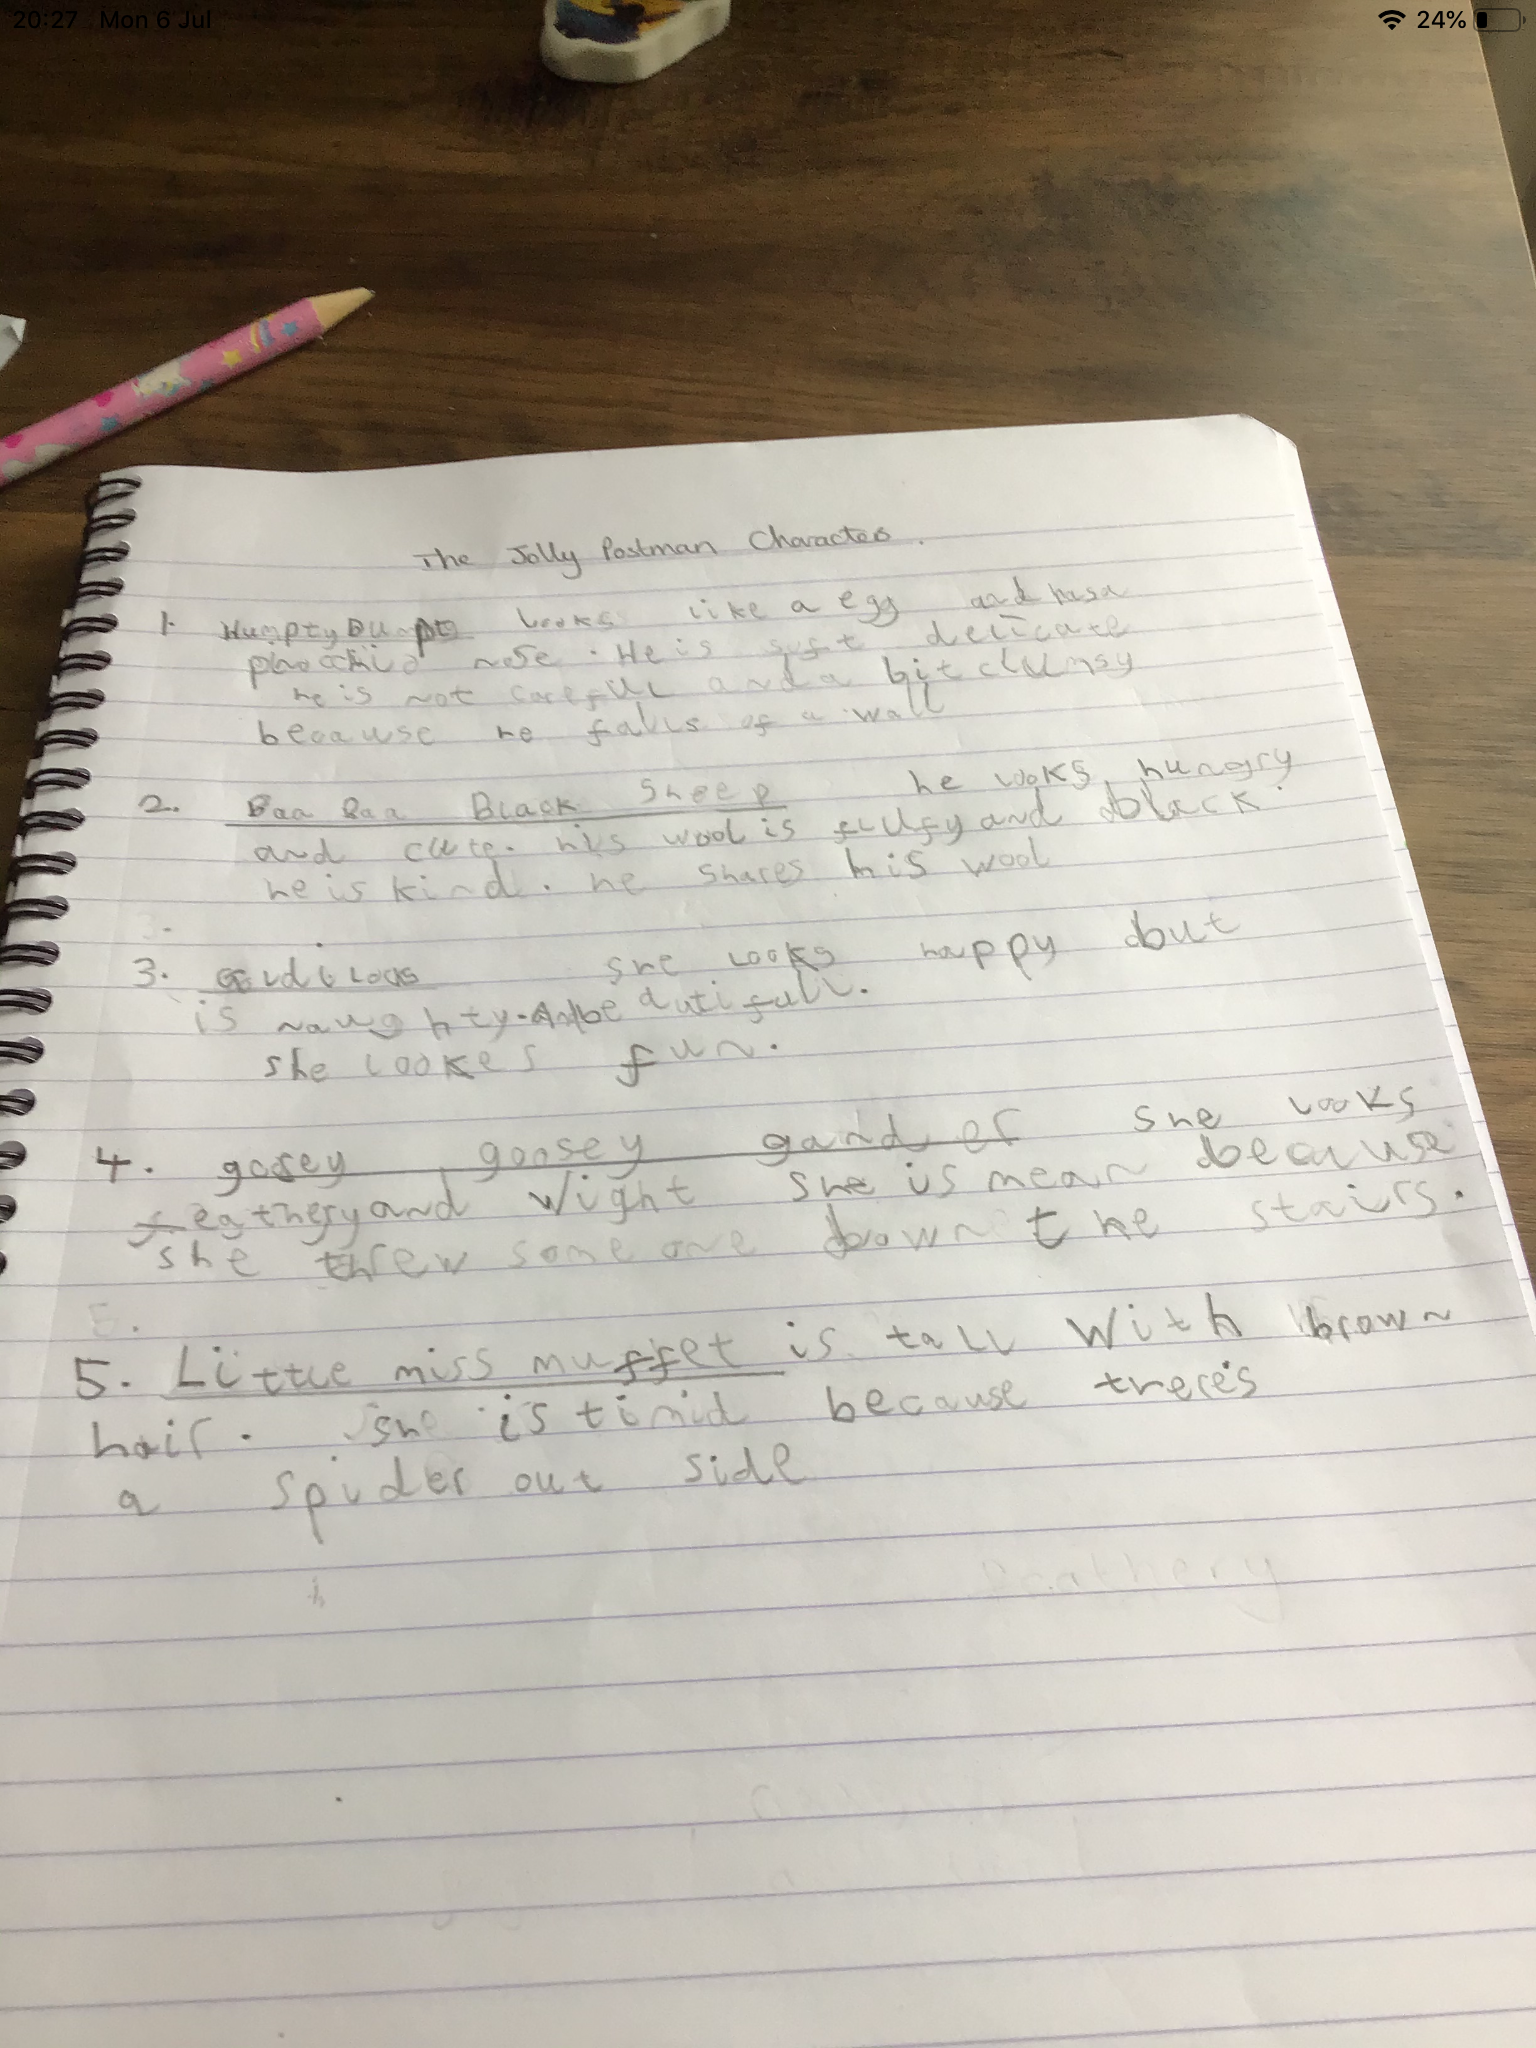 20:27 Mon 6 Jul
24%
The Jolly Postman Characters.
1. Humpty Dumpt looks like a egg and has a
pinocchio nose. He is soft delicate
he is not careful and a bit clumsy
because he falls of a wall
2. Baa Baa Black Sheep he looks hungry
and cute. his wool is flufy and black.
he is kind. he shares his wool
3. she looks happy but
is naughty. And beautifull.
she lookes fun.
4. goosey goosey gander she looks
feathery and wight she is mean because
she threw some one down the stairs.
5.
5. Little miss muffet is tall with brown
hair. she is timid because there's
a spider out side
feathery